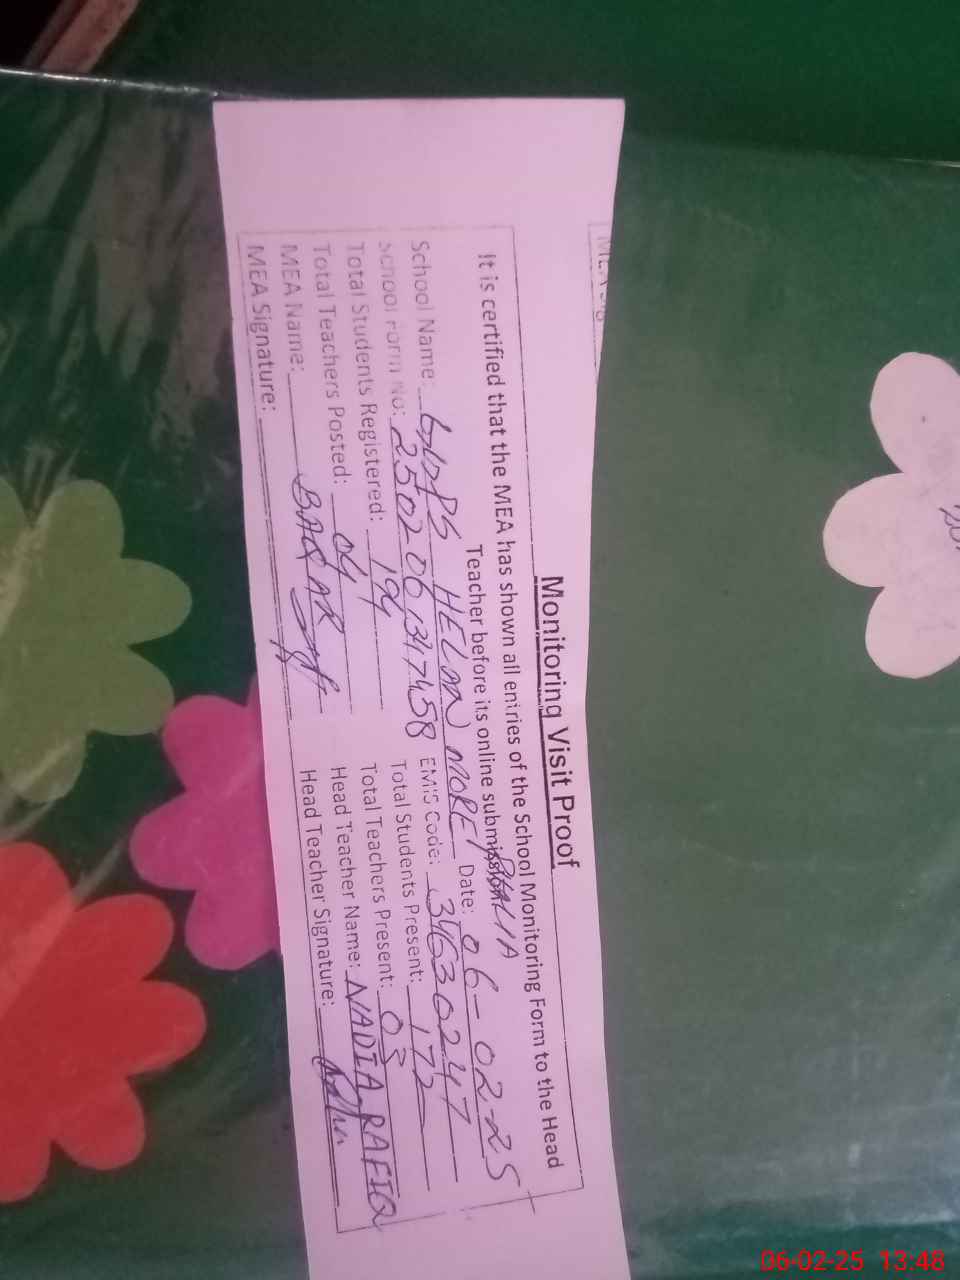 Monitoring Visit Proof
It is certified that the MEA has shown all entries of the School Monitoring Form to the Head
Teacher before its online submission.
School Name: HELAN MORE PHALIA Date: 06-02-25
School Form No: EMIS Code: 34630247
Total Students Registered: 194 Total Students Present: 172
Total Teachers Posted: 04 Total Teachers Present: 03
MEA Name: BAQAR Head Teacher Name: NADIA RAFIQ
MEA Signature: Head Teacher Signature:
06-02-25 13:48